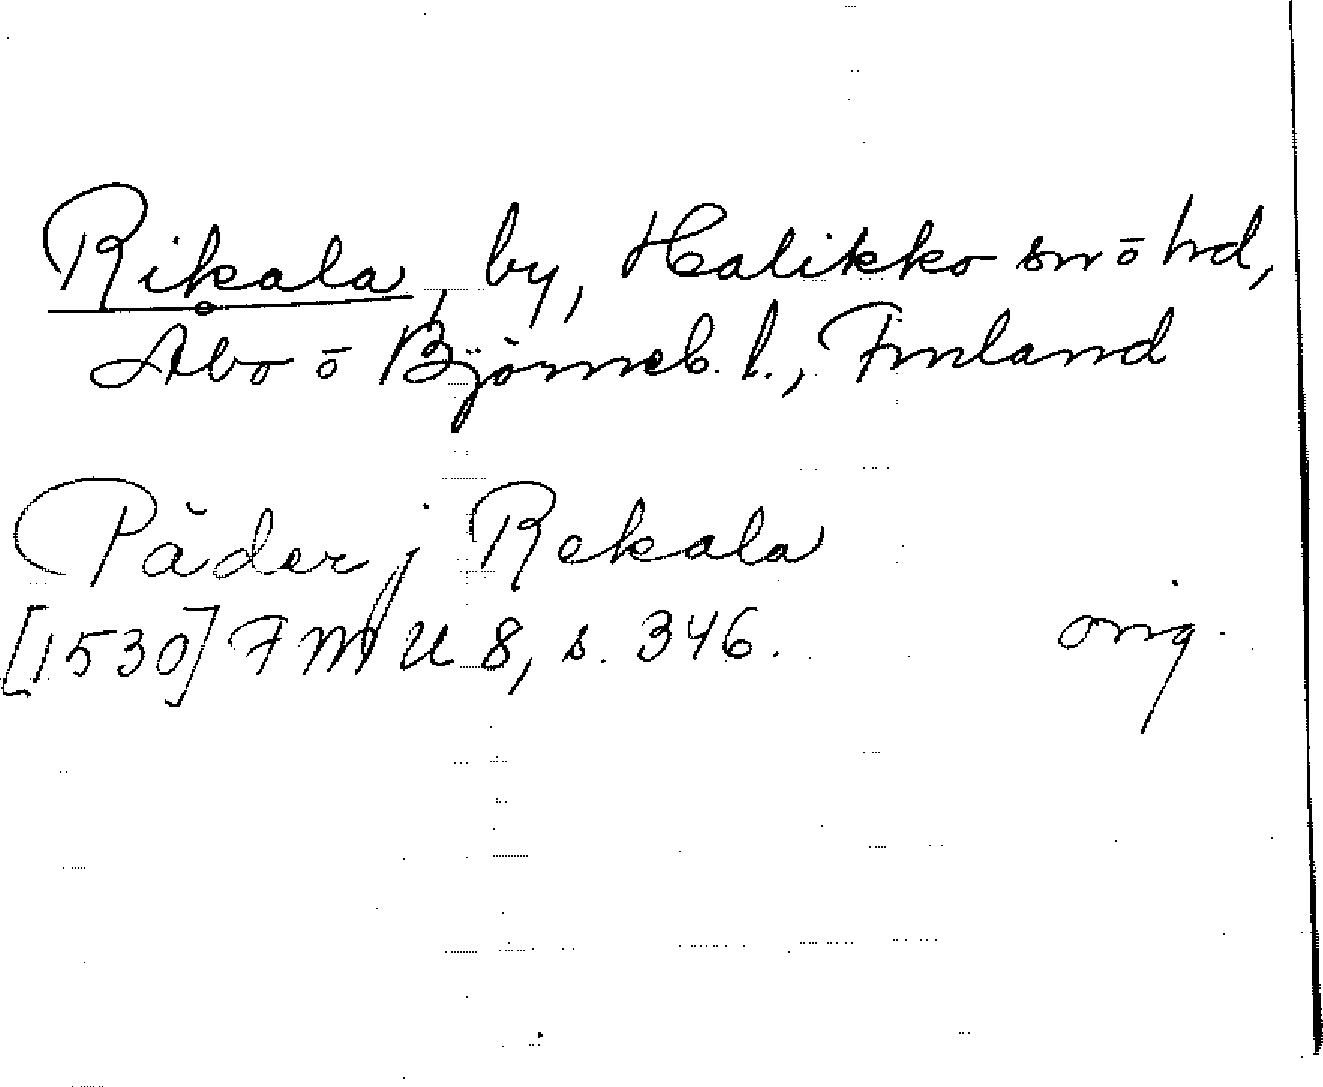 Rikala, by, Halikko sn ō hd,
Åbo ō Björneb. l., Finland
Päder j Rekala
[1530] FMU 8, s. 346. orig.